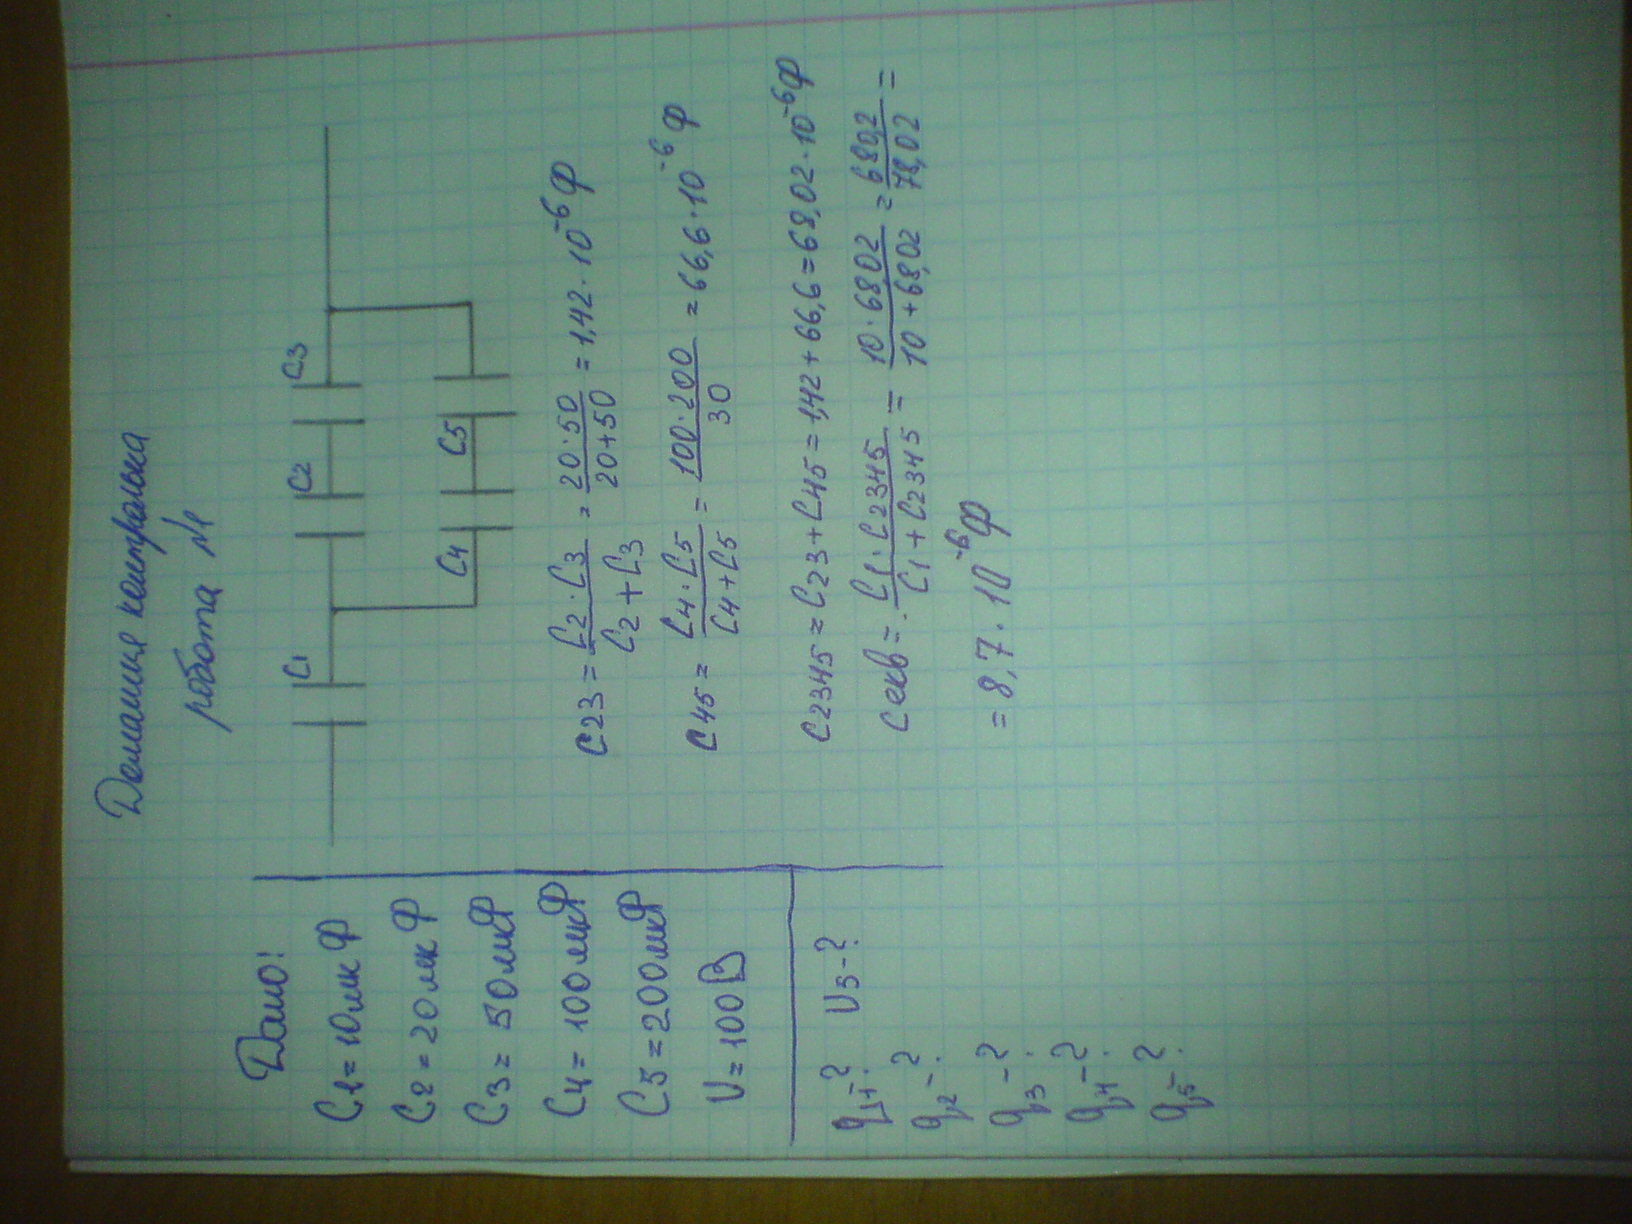 Домашня контрольна
робота №1
Дано:
C1 = 10мкФ
C2 = 20мкФ
C3 = 50мкФ
C4 = 100мкФ
C5 = 200мкФ
U = 100В
q1-? U3-?
q2-?
q3-?
q4-?
q5-?
C1 C2 C3
C4 C5
C23 = C2·C3 / C2+C3 = 20·50 / 20+50 = 1,42·10⁻⁶Ф
C45 = C4·C5 / C4+C5 = 100·200 / 30 = 66,6·10⁻⁶Ф
C2345 = C23+C45 = 1,42+66,6 = 68,02·10⁻⁶Ф
Cекв = C1·C2345 / C1+C2345 = 10·6802 / 10+68,02 = 680,2 / 78,02 =
= 8,7·10⁻⁶Ф